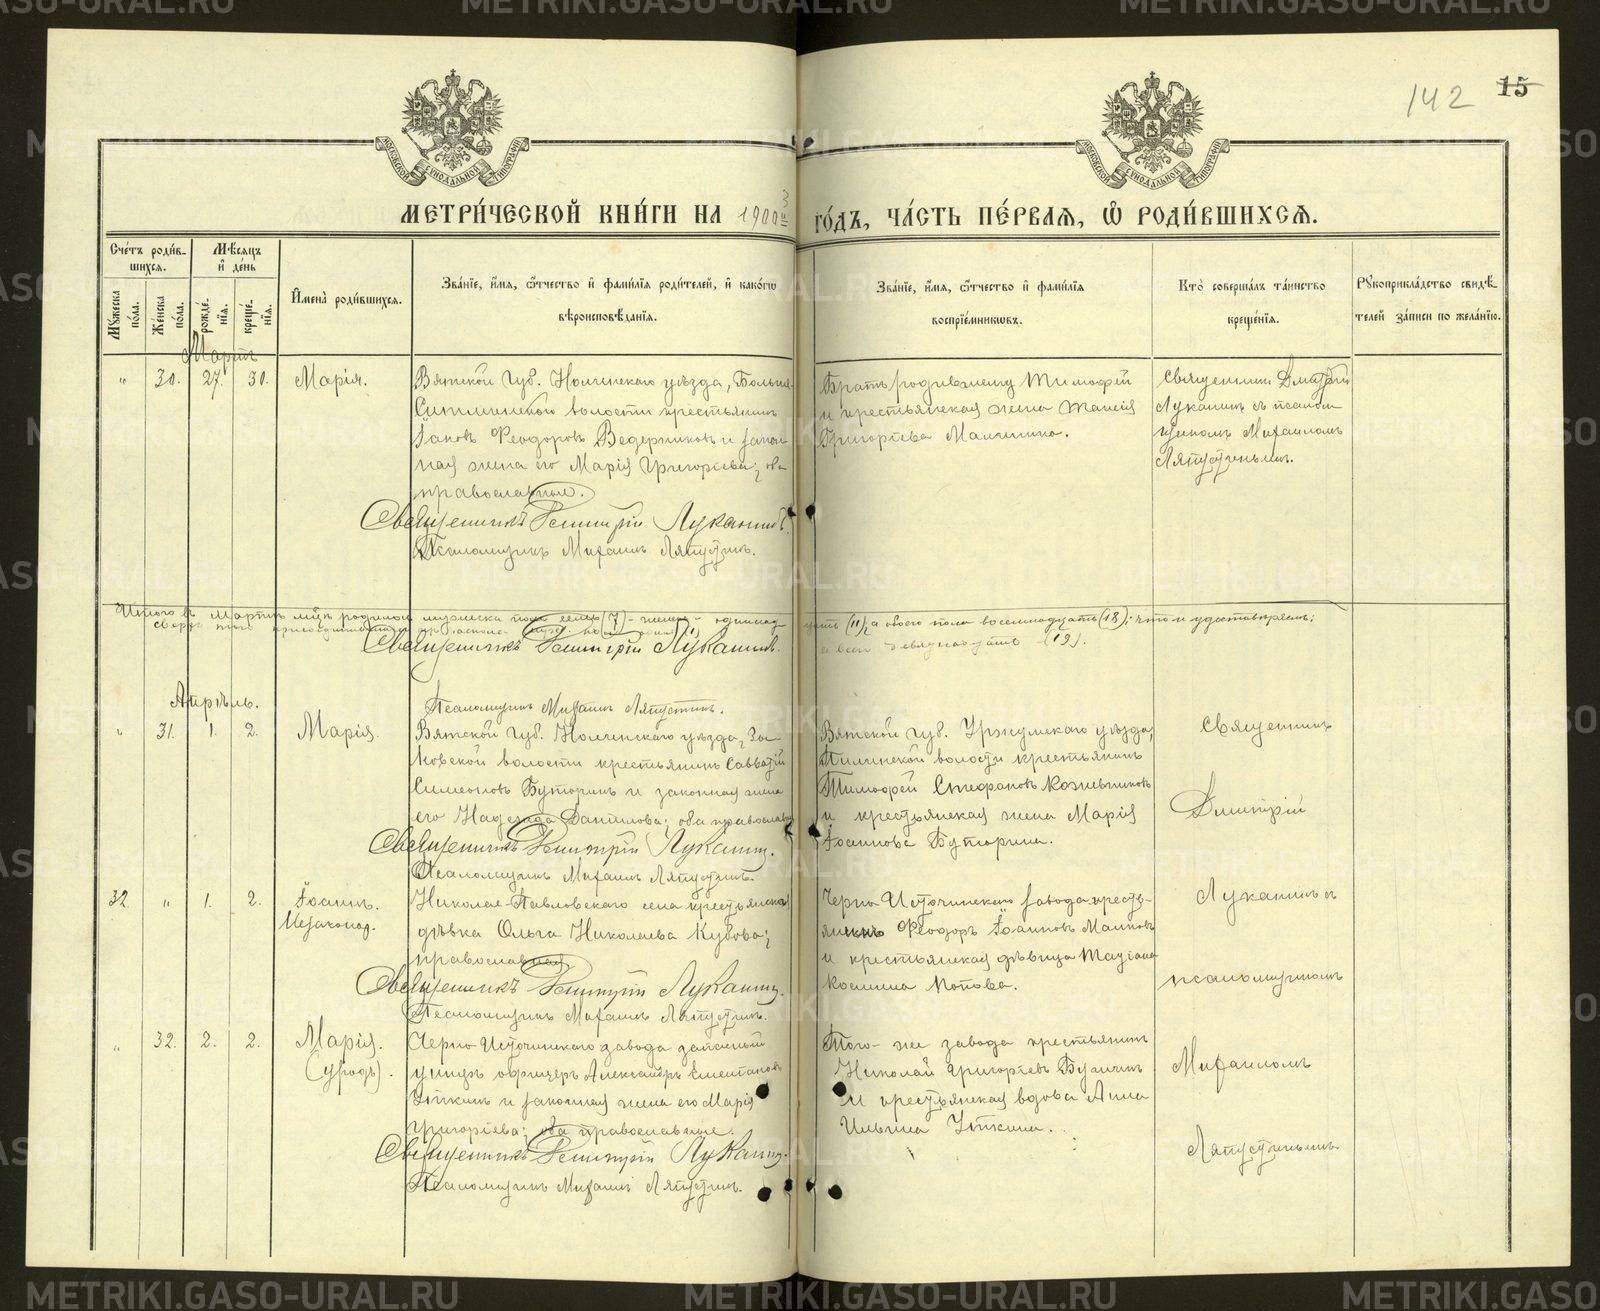 142
15
МОСКОВСКОЙ СѴНОДАЛЬНОЙ ТИПОГРАФІИ
МОСКОВСКОЙ СѴНОДАЛЬНОЙ ТИПОГРАФІИ
МЕТРИ́ЧЕСКОЙ КНИ́ГИ НА 1900 3 ГО́ДЪ, ЧА́СТЬ ПЕ́РВАЯ, Ѡ РОДИ́ВШИХСЯ.
Сче́тъ роди́в-
шихся.
Мѣ́сяцъ
и де́нь
Му́жеска по́ла.
Же́нска по́ла.
рожде́нія.
креще́нія.
Имена̀ роди́вшихся.
Зва́ніе, и́мя, ѻ́тчество и фами́лія роди́телей, и како́гѡ
вѣроисповѣ́данія.
Зва́ніе, и́мя, ѻ́тчество и фами́лія
воспріе́мникѡвъ.
Кто̀ соверша́лъ та́инство
креще́нія.
Рꙋкоприкла́дство свидѣ́-
телей за́писи по жела́нію.
Мартъ
" 30. 27. 30. Марія.
Вятской Губ. Нолинскаго уѣзда, Больше-
волости крестьянинъ
Іаковъ Ѳеодоровъ Ведерниковъ и закон
ная жена его Марія Григорьева; оба
православные.
Священникъ Димитрій Луканинъ.
Псаломщикъ Михаилъ Ляпустинъ.
Братъ родившему Тимофей
и крестьянская жена Таисія
Григорьева Малинина.
Священникъ Димитрій
Луканинъ съ псалом
щикомъ Михаиломъ
Ляпустинымъ.
Итого въ Мартѣ мцѣ родилось мужеска пола семь (7) женс- одиннад
цать (11), а обоего пола восемнадцать (18): что и удостовѣряемъ:
а всего девятнадцать (19).
Священникъ Димитрій Луканинъ.
Псаломщикъ Михаилъ Ляпустинъ.
Апрѣль.
" 31. 1. 2. Марія.
Вятской Губ. Нолинскаго уѣзда,
волости крестьянинъ Савватій
Симеоновъ Буторинъ и законная жена
его Надежда Данилова; оба православн
Священникъ Димитрій Луканинъ.
Псаломщикъ Михаилъ Ляпустинъ.
Вятской Губ. Уржумскаго уѣзда,
волости крестьянинъ
Тимоѳей Стефановъ Кожевниковъ
и крестьянская жена Марія
Іоаннова Буторина.
Священникъ
Димитрій
Луканинъ съ
псаломщикомъ
Михаиломъ
Ляпустинымъ
32. " 1. 2. Іоаннъ.
Незаконор.
Николае-Павловскаго села крестьянская
дѣвка Ольга Николаева Кубова;
православная
Священникъ Димитрій Луканинъ.
Псаломщикъ Михаилъ Ляпустинъ.
Черно Источинскаго завода кресть-
янинъ Ѳеодоръ Іоанновъ Маликовъ
и крестьянская дѣвица Татіана
Косьмина Попова.
" 32. 2. 2. Марія.
(уродъ).
Черно Источинскаго завода запасный
унтеръ офицеръ Александръ
Уткинъ и законная жена его Марія
Григорьева; оба православные.
Священникъ Димитрій Луканинъ.
Псаломщикъ Михаилъ Ляпустинъ.
Того-же завода крестьянинъ
Николай Григорьевъ
и крестьянская вдова Анна
Ильина Уткина.
METRIKI.GASO-URAL.RU